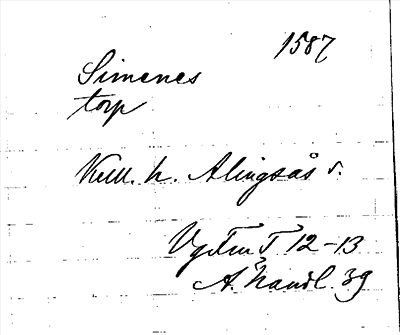 1587
Simenes
torp
Kull. h. Alingsås s.
Vg Fm T 12-13
Ä. handl. 39